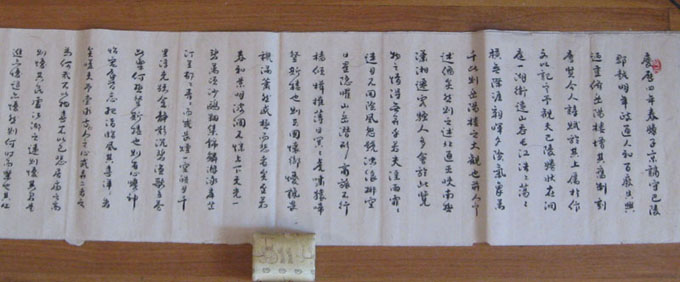 慶歷四年春滕子京謫守巴陵
郡越明年政通人和百廢具興
迺重脩岳陽樓增其舊制刻
唐賢今人詩賦於其上屬於作
文以記之予觀夫巴陵勝狀在洞
庭一湖銜遠山吞長江浩浩湯湯
橫無際涯朝暉夕陰氣象萬
千此則岳陽樓之大觀也前人之
述備矣然則北通巫峽南極
瀟湘遷客騷人多會於此覽
物之情得無異乎若夫淫雨霏霏
連月不開陰風怒號濁浪排空
日星隱曜山岳潛形商旅不行
檣傾楫摧薄暮冥冥虎嘯猿啼
登斯樓也則有去國懷鄉憂讒畏
譏滿目蕭然感極而悲者矣至若
春和景明波瀾不驚上下天光一
碧萬頃沙鷗翔集錦鱗游泳岸芷
汀蘭郁郁青青而或長煙一空皓月千
里浮光躍金靜影沉璧漁歌互答
此樂何極登斯樓也則有心曠神
怡寵辱偕忘把酒臨風其喜洋洋者
矣嗟夫予嘗求古仁人之心或異二者之
為何哉不以物喜不以己悲居廟堂之高
則憂其民處江湖之遠則憂其君是
進亦憂退亦憂然則何時而樂也其必